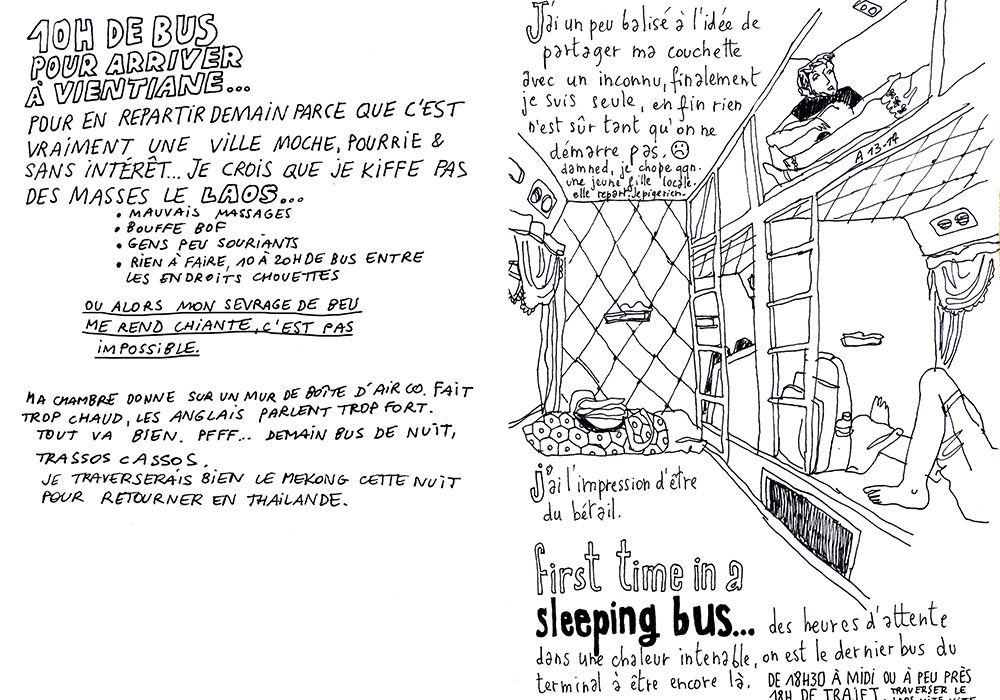 10H DE BUS
POUR ARRIVER
À VIENTIANE...
POUR EN REPARTIR DEMAIN PARCE QUE C'EST
VRAIMENT UNE VILLE MOCHE, POURRIE &
SANS INTÉRÊT... JE CROIS QUE JE KIFFE PAS
DES MASSES LE LAOS...
• MAUVAIS MASSAGES
• BOUFFE BOF
• GENS PEU SOURIANTS
• RIEN À FAIRE, 10 À 20H DE BUS ENTRE
LES ENDROITS CHOUETTES
OU ALORS MON SEVRAGE DE BEU
ME REND CHIANTE, C'EST PAS
IMPOSSIBLE.
MA CHAMBRE DONNE SUR UN MUR DE BOÎTE D'AIR CO. FAIT
TROP CHAUD, LES ANGLAIS PARLENT TROP FORT.
TOUT VA BIEN. PFFF... DEMAIN BUS DE NUIT,
TRASSOS CASSOS.
JE TRAVERSERAIS BIEN LE MEKONG CETTE NUIT
POUR RETOURNER EN THAÏLANDE.
J'ai un peu balisé à l'idée de
partager ma couchette
avec un inconnu, finalement
je suis seule, enfin rien
n'est sûr tant qu'on ne
démarre pas. ☹
damned, je chope qqn.
une jeune fille locale.
elle repart. Je pige rien.
A 13-14
j'ai l'impression d'être
du bétail.
first time in a
sleeping bus... des heures d'attente
dans une chaleur intenable, on est le dernier bus du
terminal à être encore là. DE 18H30 À MIDI OU À PEU PRÈS
18H DE TRAJET. TRAVERSER LE